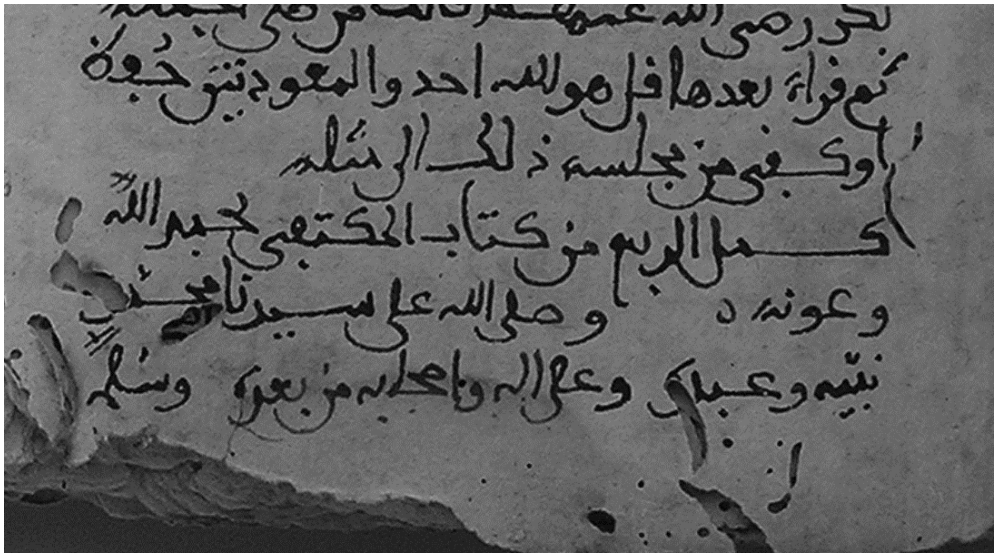 بكر رضى الله عنه
ثم قراء بعدها قل هو الله احد والمعوذتين حُوة
او كفى من مجلسه ذلك الى مثله
كمل الربع من كتاب المكتفى بحمد الله
وعونه وصلى الله على سيدنا محمد
نبيّه وعبده وعلى اله واصحابه من بعده وسلم